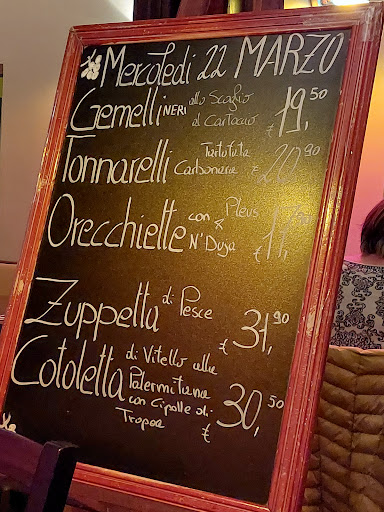 Mercoledì 22 MARZO
Gemelli NERI allo Scoglio al Cartoccio € 19,50
Tonnarelli Carbonara € 20,90
Orecchiette con & N'Duja €
Zuppetta di Pesce € 31,90
Cotoletta di Vitello alla Palermitana con Cipolle di Tropea € 30,50